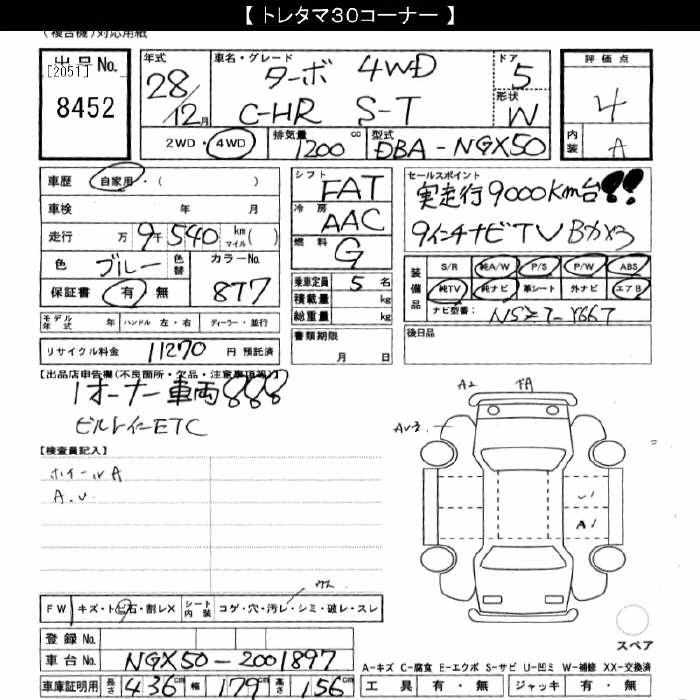 【 トレタマ30コーナー 】
(複合機)対応用紙
出品No.
[2051]
8452
年式
28/12月
車名・グレード
ターボ 4WD
C-HR S-T
ドア
5
形状
W
評価点
4
内装
A
2WD・4WD
排気量 1200 cc
型式 DBA-NGX50
車歴 自家用・( )
車検 年 月
走行 万 9千540 km マイル( )
色 ブルー 色替
カラーNo. 8T7
保証書 有 無
シフト FAT
冷房 AAC
燃料 G
乗車定員 5 名
積載量 kg
総重量 kg
セールスポイント
実走行9000Km台!!
9インチナビTV Bカメラ
装備品
S/R 純A/W P/S P/W ABS
純TV 純ナビ 革シート 外ナビ エアB
ナビ型番:
モデル年式 年 ハンドル 左・右 ディーラー・並行
リサイクル料金 11270 円 預託済
書類期限
月 日
後日品
【出品店申告欄(不良箇所・欠品・注意事項等)】
1オーナー車両
ビルトインETC
【検査員記入】
ホイールA
A.U
A2
AU3
A1
FW キズ・トビ石・割レX
シート内装 コゲ・穴・汚レ・シミ・破レ・スレ
ウス
登録No.
車台No. NGX50-2001897
車庫証明用 長さ 436cm 幅 179cm 高さ 156cm
スペア
A-キズ C-腐食 E-エクボ S-サビ U-凹ミ W-補修 XX-交換済
工具 有・無 ジャッキ 有・無